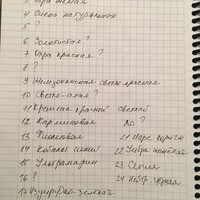 3 Охра жёлтая
4 Сиена натуральная
5 ?
6 Золотистая ?
7 Охра красная ?
8 ?
9 Железоокисная светло-красная
10 Светло-алая ?
11 Краплак красный светлый
12 Карминовая ло ?
13 Фиолетовая 21 Марс коричн
14 Кобальт синий 22 Умбра жжёная
15 Ультрамарин 23 Сепия
16 ? 24 Нейтр. чёрная
17 Изумрудно-зеленая